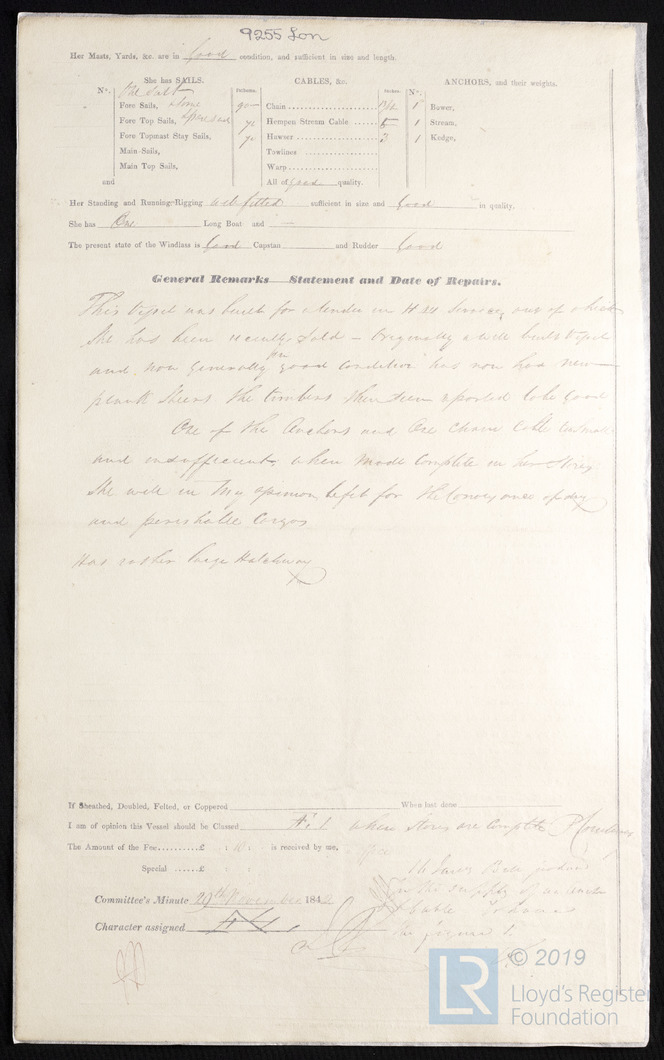 9255 Lon
Her Masts, Yards, &c. are in Good condition, and sufficient in size and length.
She has SAILS. CABLES, &c. ANCHORS, and their weights.
N°. Fathoms. Inches. N°.
One Suit
Fore Sails, Chain 1 Bower,
Fore Top Sails, Hempen Stream Cable 5 1 Stream,
Fore Topmast Stay Sails, Hawser 3 1 Kedge,
Main Sails, Towlines
Main Top Sails, Warp
and All of good quality.
Her Standing and Running Rigging well fitted sufficient in size and Good in quality.
She has One Long Boat and —
The present state of the Windlass is Good Capstan and Rudder Good
General Remarks Statement and Date of Repairs.
This Vessel was built for a tender in H M Service, out of which
She has been recently Sold – Originally a well built Vessel
and now Generally in good condition has now had new
plank Sheers the timbers then seen reported to be good
One of the Anchors and One Chain Cable too small
and insufficient, when made Complete in her Stores
She will in my opinion be fit for the Conveyance of dry
and perishable Cargos
Has rather large Hatchway
If Sheathed, Doubled, Felted, or Coppered When last done
I am of opinion this Vessel should be Classed Æ 1 when Stores are Complete P Courtenay
The Amount of the Fee £ : 10 : is received by me,
Special £ : :
the supply of an Anchor
Cable
the figure 1.
Committee's Minute 29th November 1842
Character assigned
© 2019
LR
Lloyd's Register
Foundation